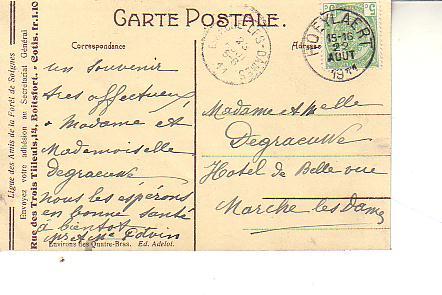 CARTE POSTALE.
Correspondance
Adresse
HOEYLAERT
15-16
22
AOUT
1911
5
5
Ligue des Amis de la Forêt de Soignes
Envoyez votre adhésion au Secrétariat Général
Rue des Trois Tilleuls, 14, Boitsfort. - Cotis. fr. 1.10
un souvenir
tres affectueux
a Madame et
Mademoiselle
Degraeuwe
nous les espérons
en bonne santé
à bientot
Mr et Me
Madame et Melle
Degraeuwe
Hotel de Belle vue
Marche les Dames
Environs des Quatre-Bras. Ed. Adelot.